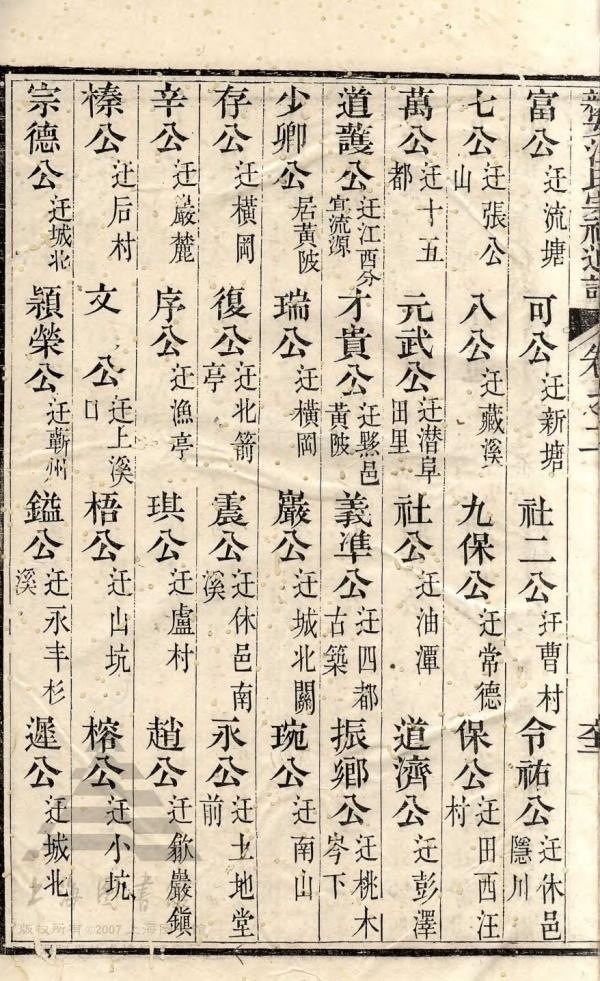 新安汪氏宗祠通譜 卷之二
富公 迁流塘 可公 迁新塘 社二公 迁曹村 令祐公 迁休邑隱川
七公 迁張公山 八公 迁藏溪 九保公 迁常德 保公 迁田西汪村
萬公 迁十五都 元武公 迁潛阜田里 社公 迁油潭 道濟公 迁彭澤
道護公 迁江西分寧流源 才貴公 迁黟邑黃陂 義準公 迁四都古築 振鄉公 迁桃木岑下
少卿公 居黃陂 瑞公 迁橫岡 巖公 迁城北關 琬公 迁南山
存公 迁橫岡 復公 迁北箭亭 震公 迁休邑南溪 永公 迁土地堂前
辛公 迁巖麓 序公 迁漁亭 琪公 迁盧村 趙公 迁歙巖鎮
榛公 迁后村 文公 迁上溪口 梧公 迁山坑 榕公 迁小坑
宗德公 迁城北 穎榮公 迁蘄州 鎰公 迁永丰杉溪 遲公 迁城北
上海圖書館
版权所有©2007 上海图书馆